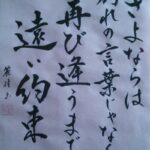 さよならは
別れの言葉じゃなく
再び逢うまで
遠い約束